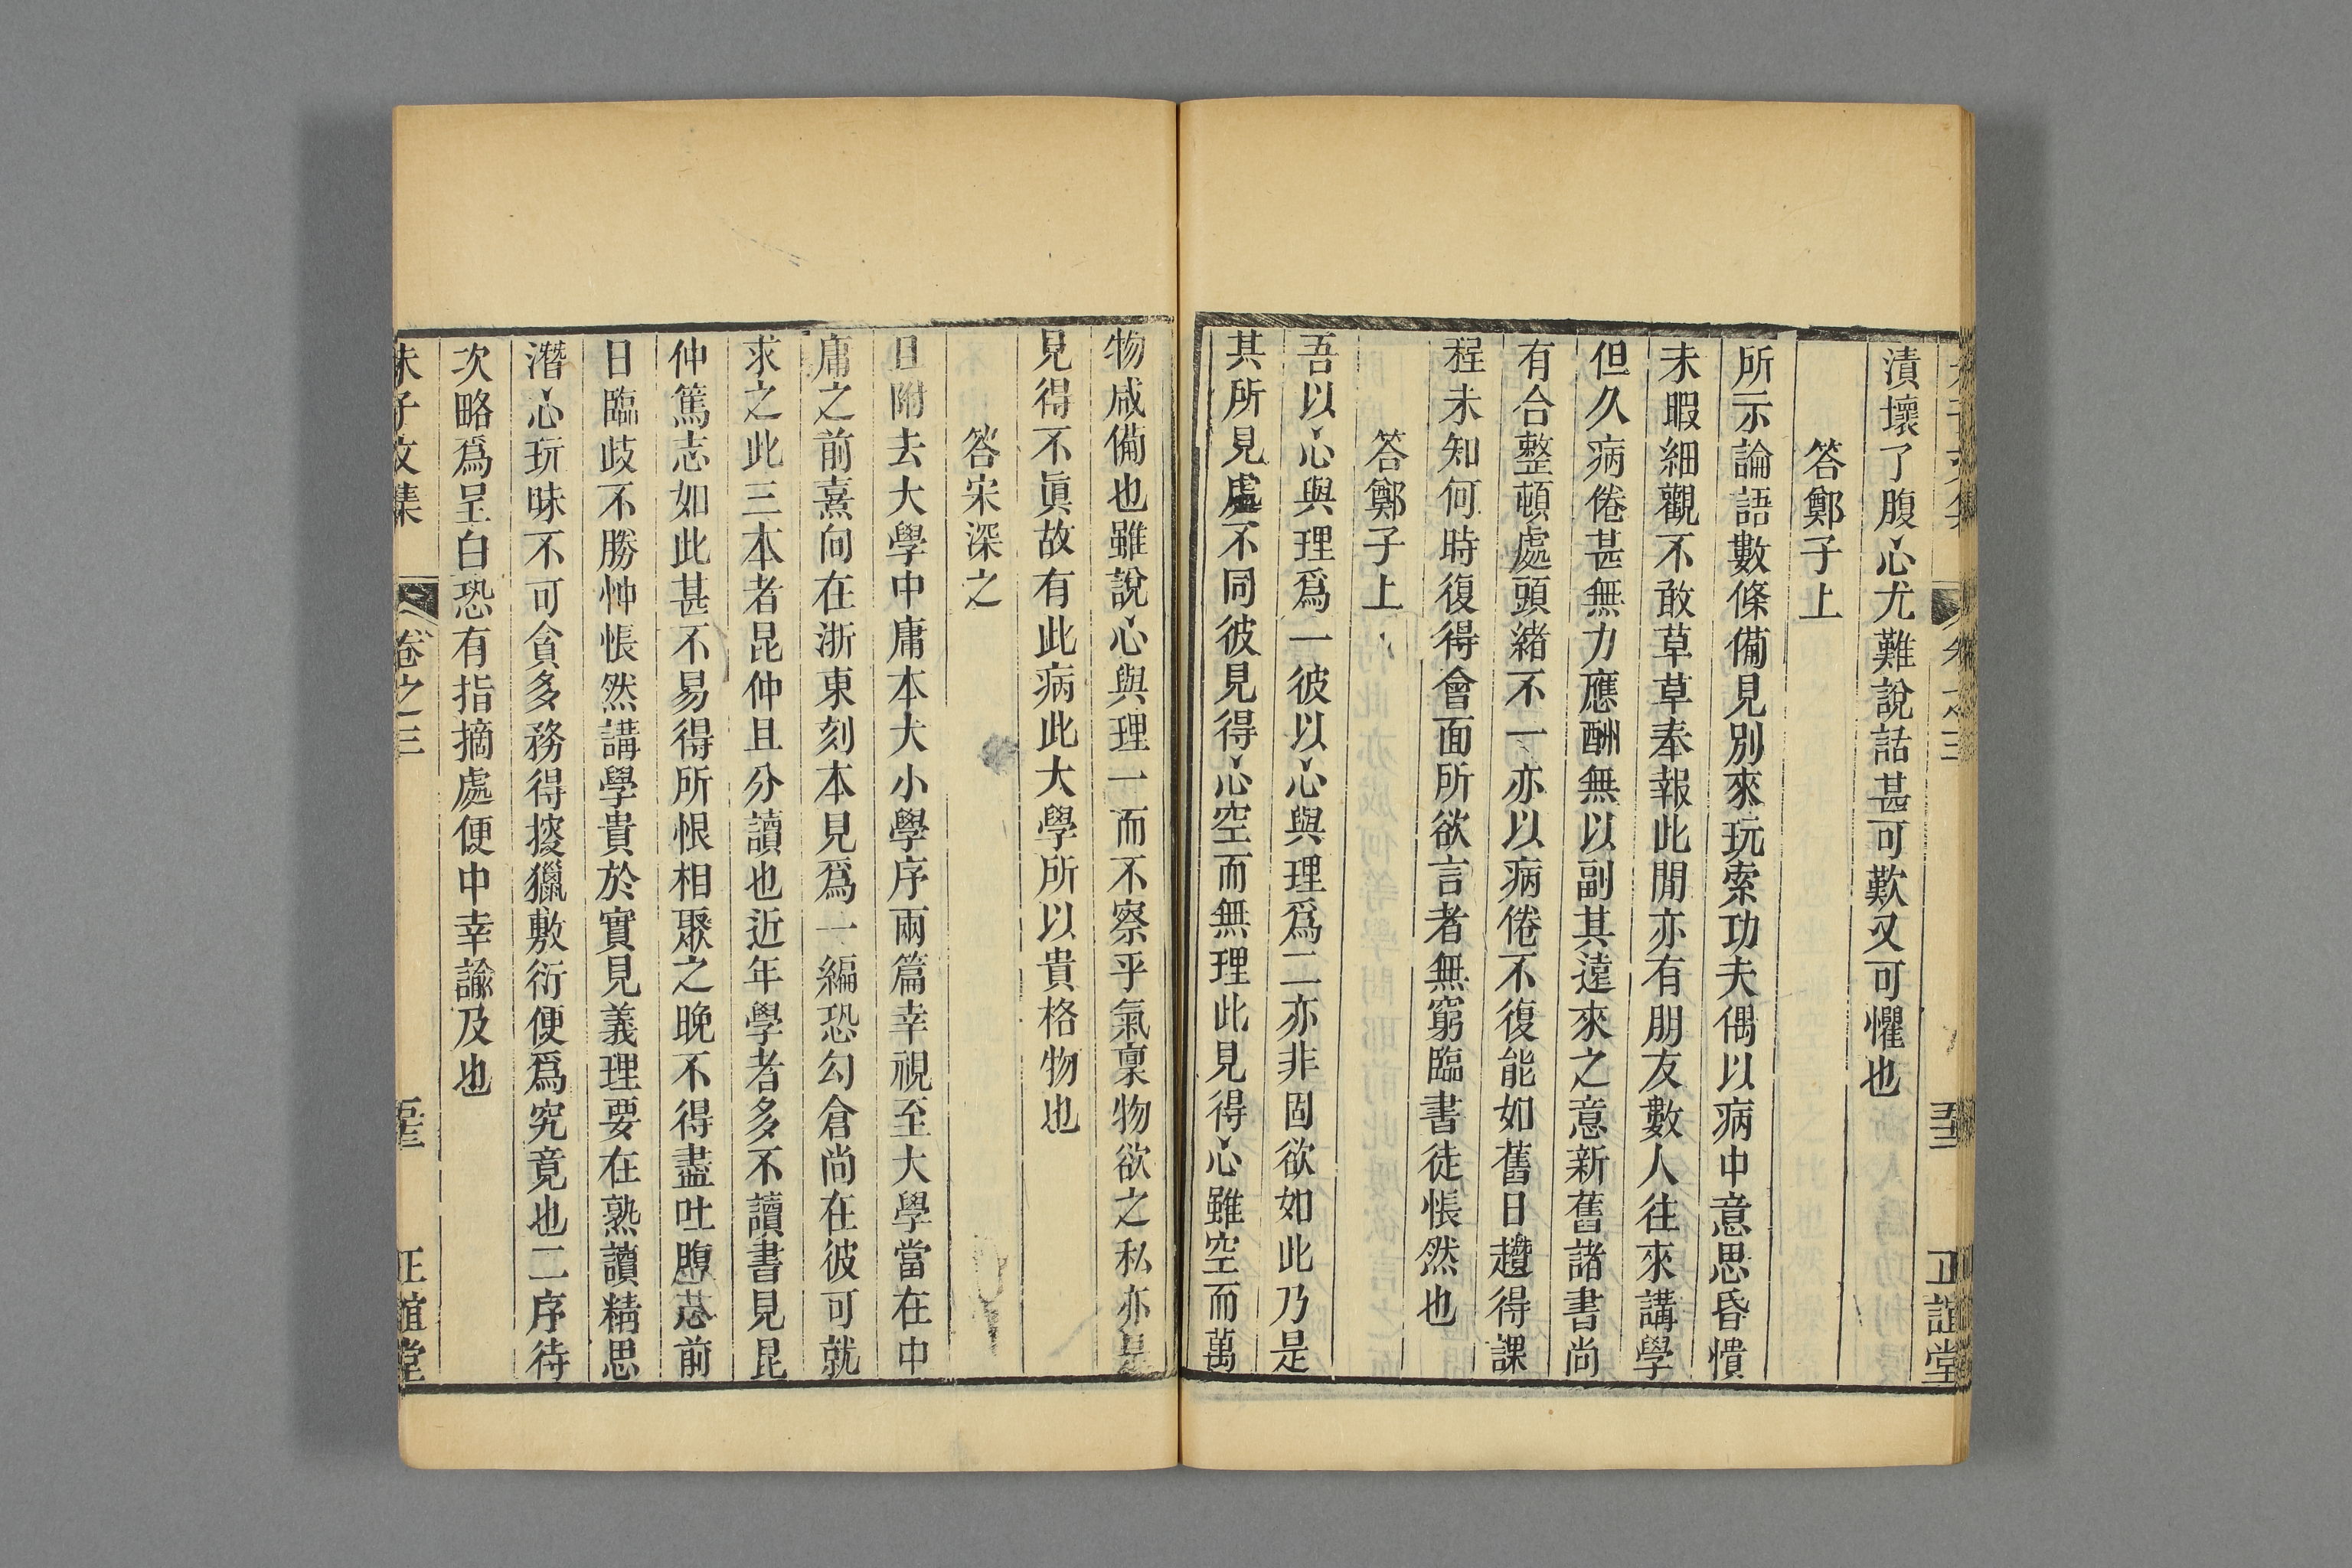 漬壞了腹心尤難說話甚可歎又可懼也
答鄭子上
所示論語數條備見別來玩索功夫偶以病中意思昏憒
未暇細觀不敢草草奉報此閒亦有朋友數人往來講學
但久病倦甚無力應酬無以副其遠來之意新舊諸書尚
有合整頓處頭緒不一亦以病倦不復能如舊日趲得課
程未知何時復得會面所欲言者無窮臨書徒悵然也
答鄭子上
吾以心與理爲一彼以心與理爲二亦非固欲如此乃是
其所見處不同彼見得心空而無理此見得心雖空而萬
物咸備也雖說心與理一而不察乎氣稟物欲之私亦是
見得不眞故有此病此大學所以貴格物也
答宋深之
且附去大學中庸本大小學序兩篇幸視至大學當在中
庸之前熹向在浙東刻本見爲一編恐勾倉尚在彼可就
求之此三本者昆仲且分讀也近年學者多不讀書見昆
仲篤志如此甚不易得所恨相聚之晚不得盡吐腹𦚾前
日臨歧不勝忡悵然講學貴於實見義理要在熟讀精思
潛心玩味不可貪多務得搜獵敷衍便爲究竟也二序待
次略爲呈白恐有指摘處便中幸諭及也
朱子文集 卷之三 正誼堂